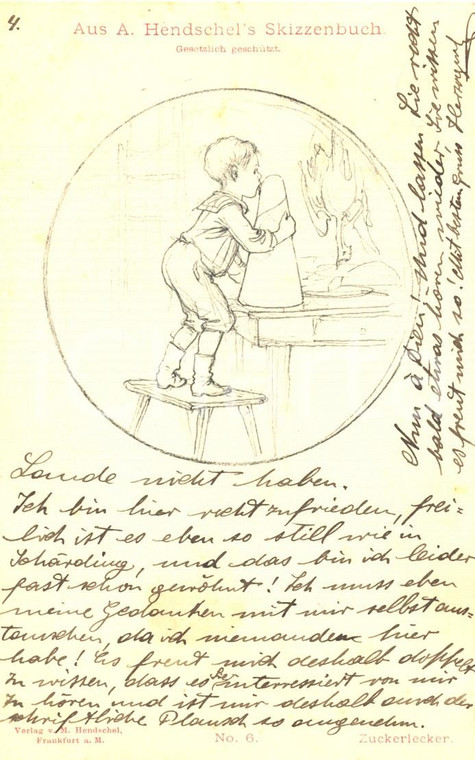 4.
Aus A. Hendschel's Skizzenbuch.
Gesetzlich geschützt.
Lande nicht haben.
Ich bin hier recht zufrieden, frei-
lich ist es eben so still wie in
Schärding, und das bin ich leider
fast schon gewöhnt! Ich muss eben
meine Gedanken mit mir selbst aus-
tauschen, da ich niemanden hier
habe! Es freut mich deshalb doppelt
zu wissen, dass es Sie interressiert von mir
zu hören und ist mir deshalb auch der
schriftliche Plausch so angenehm.
Nun à Dieu! Und lassen Sie recht
bald etwas hören wieder. Sie wissen
es freut mich so! Mit besten Gruss
Verlag v. M. Hendschel,
Frankfurt a. M.
No. 6.
Zuckerlecker.